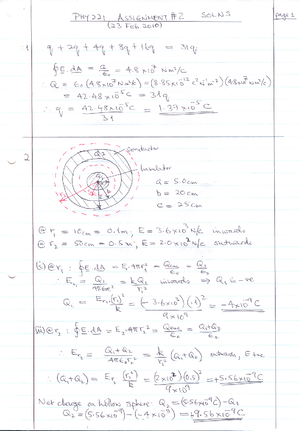 PHY221 ASSIGNMENT #2 SOLNS page 1
(23 Feb 2010)
1 q + 2q + 4q + 8q + 16q = 31q
∮E.dA = Q/ε₀ = 4.8x10⁷ Nm²/C
= 42.48x10⁻⁵C = 31q
∴ q = 42.48x10⁻⁵C / 31 = 1.37x10⁻⁵ C
2
conductor
Insulator
a = 5.0cm
b = 20cm
c = 25cm
@ r₁ = 10cm = 0.1m, E = 3.6x10³ N/C inwards
@ r₂ = 50cm = 0.5m, E = 2.0x10² N/C outwards
(i) @ r₁ : ∮E.dA = E₁.4πr₁² = Qenc/ε₀ = Q₁/ε₀
∴ E₁ = Q₁/4πε₀r₁² = kQ₁/r₁² inwards ⇒ Q₁ is -ve
Q₁ = = (-3.6x10³)(.1)² / 9x10⁹ = -4x10⁻⁹C
@ r₂ : ∮E.dA = E₂.4πr₂² = Qenc/ε₀ = Q₁+Q₂/ε₀
∴ = Q₁+Q₂ / 4πε₀r₂² = k/r₂² (Q₁+Q₂) outwards, E +ve
∴ (Q₁+Q₂) = = (2x10²)(0.5)² / 9x10⁹ = +5.56x10⁻⁹C
Net charge on hollow sphere: Q₂ = (5.56x10⁻⁹C) - Q₁
Q₂ = (5.56x10⁻⁹) - (-4x10⁻⁹) = +9.56x10⁻⁹C